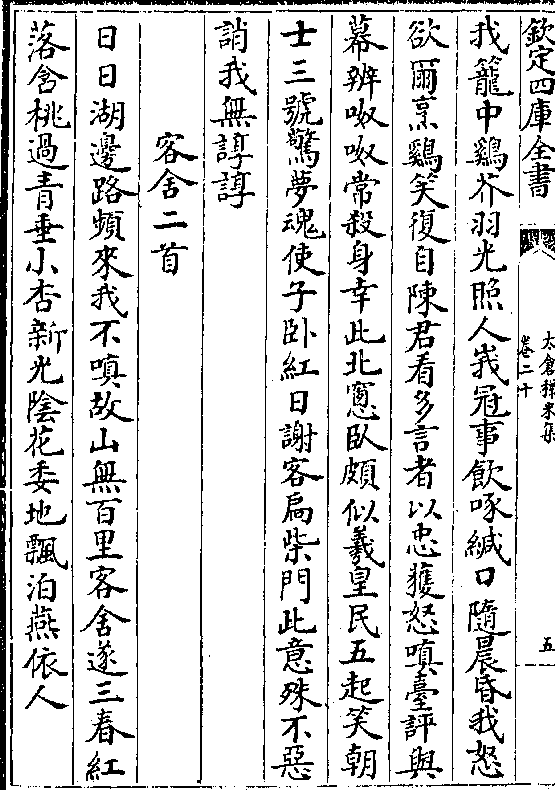 欽定四庫全書
太倉稊米集
卷二十
五
我籠中鷄芥羽光照人峩冠事飲啄緘口隨晨昏我怒
欲爾烹鷄笑復自陳君看多言者以忠獲怒嗔臺評與
幕辨呶呶常殺身幸此北窻卧頗似羲皇民五起笑朝
士三號驚夢魂使子卧紅日謝客扃柴門此意殊不惡
誚我無諄諄
客舍二首
日日湖邊路頻來我不嗔故山無百里客舍遂三春紅
落含桃過青垂小杏新光陰花委地飄泊燕依人